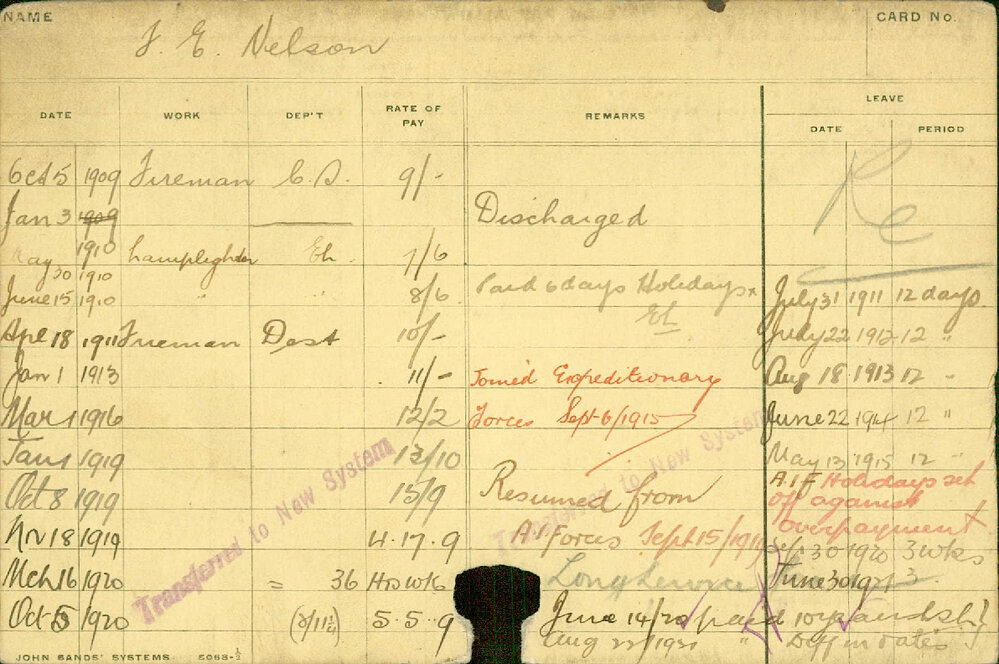 NAME
CARD No.
J. E. Nelson
DATE WORK DEP'T RATE OF PAY REMARKS LEAVE
DATE PERIOD
Oct 5 1909 Fireman C.D. 9/-
Jan 3 1909 Discharged
1910
May 30 1910 Lamplighter Eh. 7/6
June 15 1910 " 8/6 Paid 6 days Holidays x July 31 1911 12 days
Eh
Apl 18 1911 Fireman Dest 10/- July 22 1912 12 "
Jan 1 1913 11/- Joined Expeditionary Aug 18 1913 12 "
Mar 1 1916 12/2 Forces Sept 6/1915 June 22 1914 12 "
Jan 1 1919 13/10 May 13 1915 12 "
Oct 8 1919 15/9 Resumed from A.I.F Holidays set
off against
overpayment
Nov 18 1919 4.17.9 A.I. Forces Sept 15/1919 Sep 30 1920 3 wks
Mch 16 1920 = 36 Hrs wk Long Service June 30 1921 3
Oct 5 1920 5.5.9 June 14/20 paid
Aug 22/1921 " Diff in rates
Transferred to New System
Transferred to New System
JOHN SANDS' SYSTEMS 5068-½